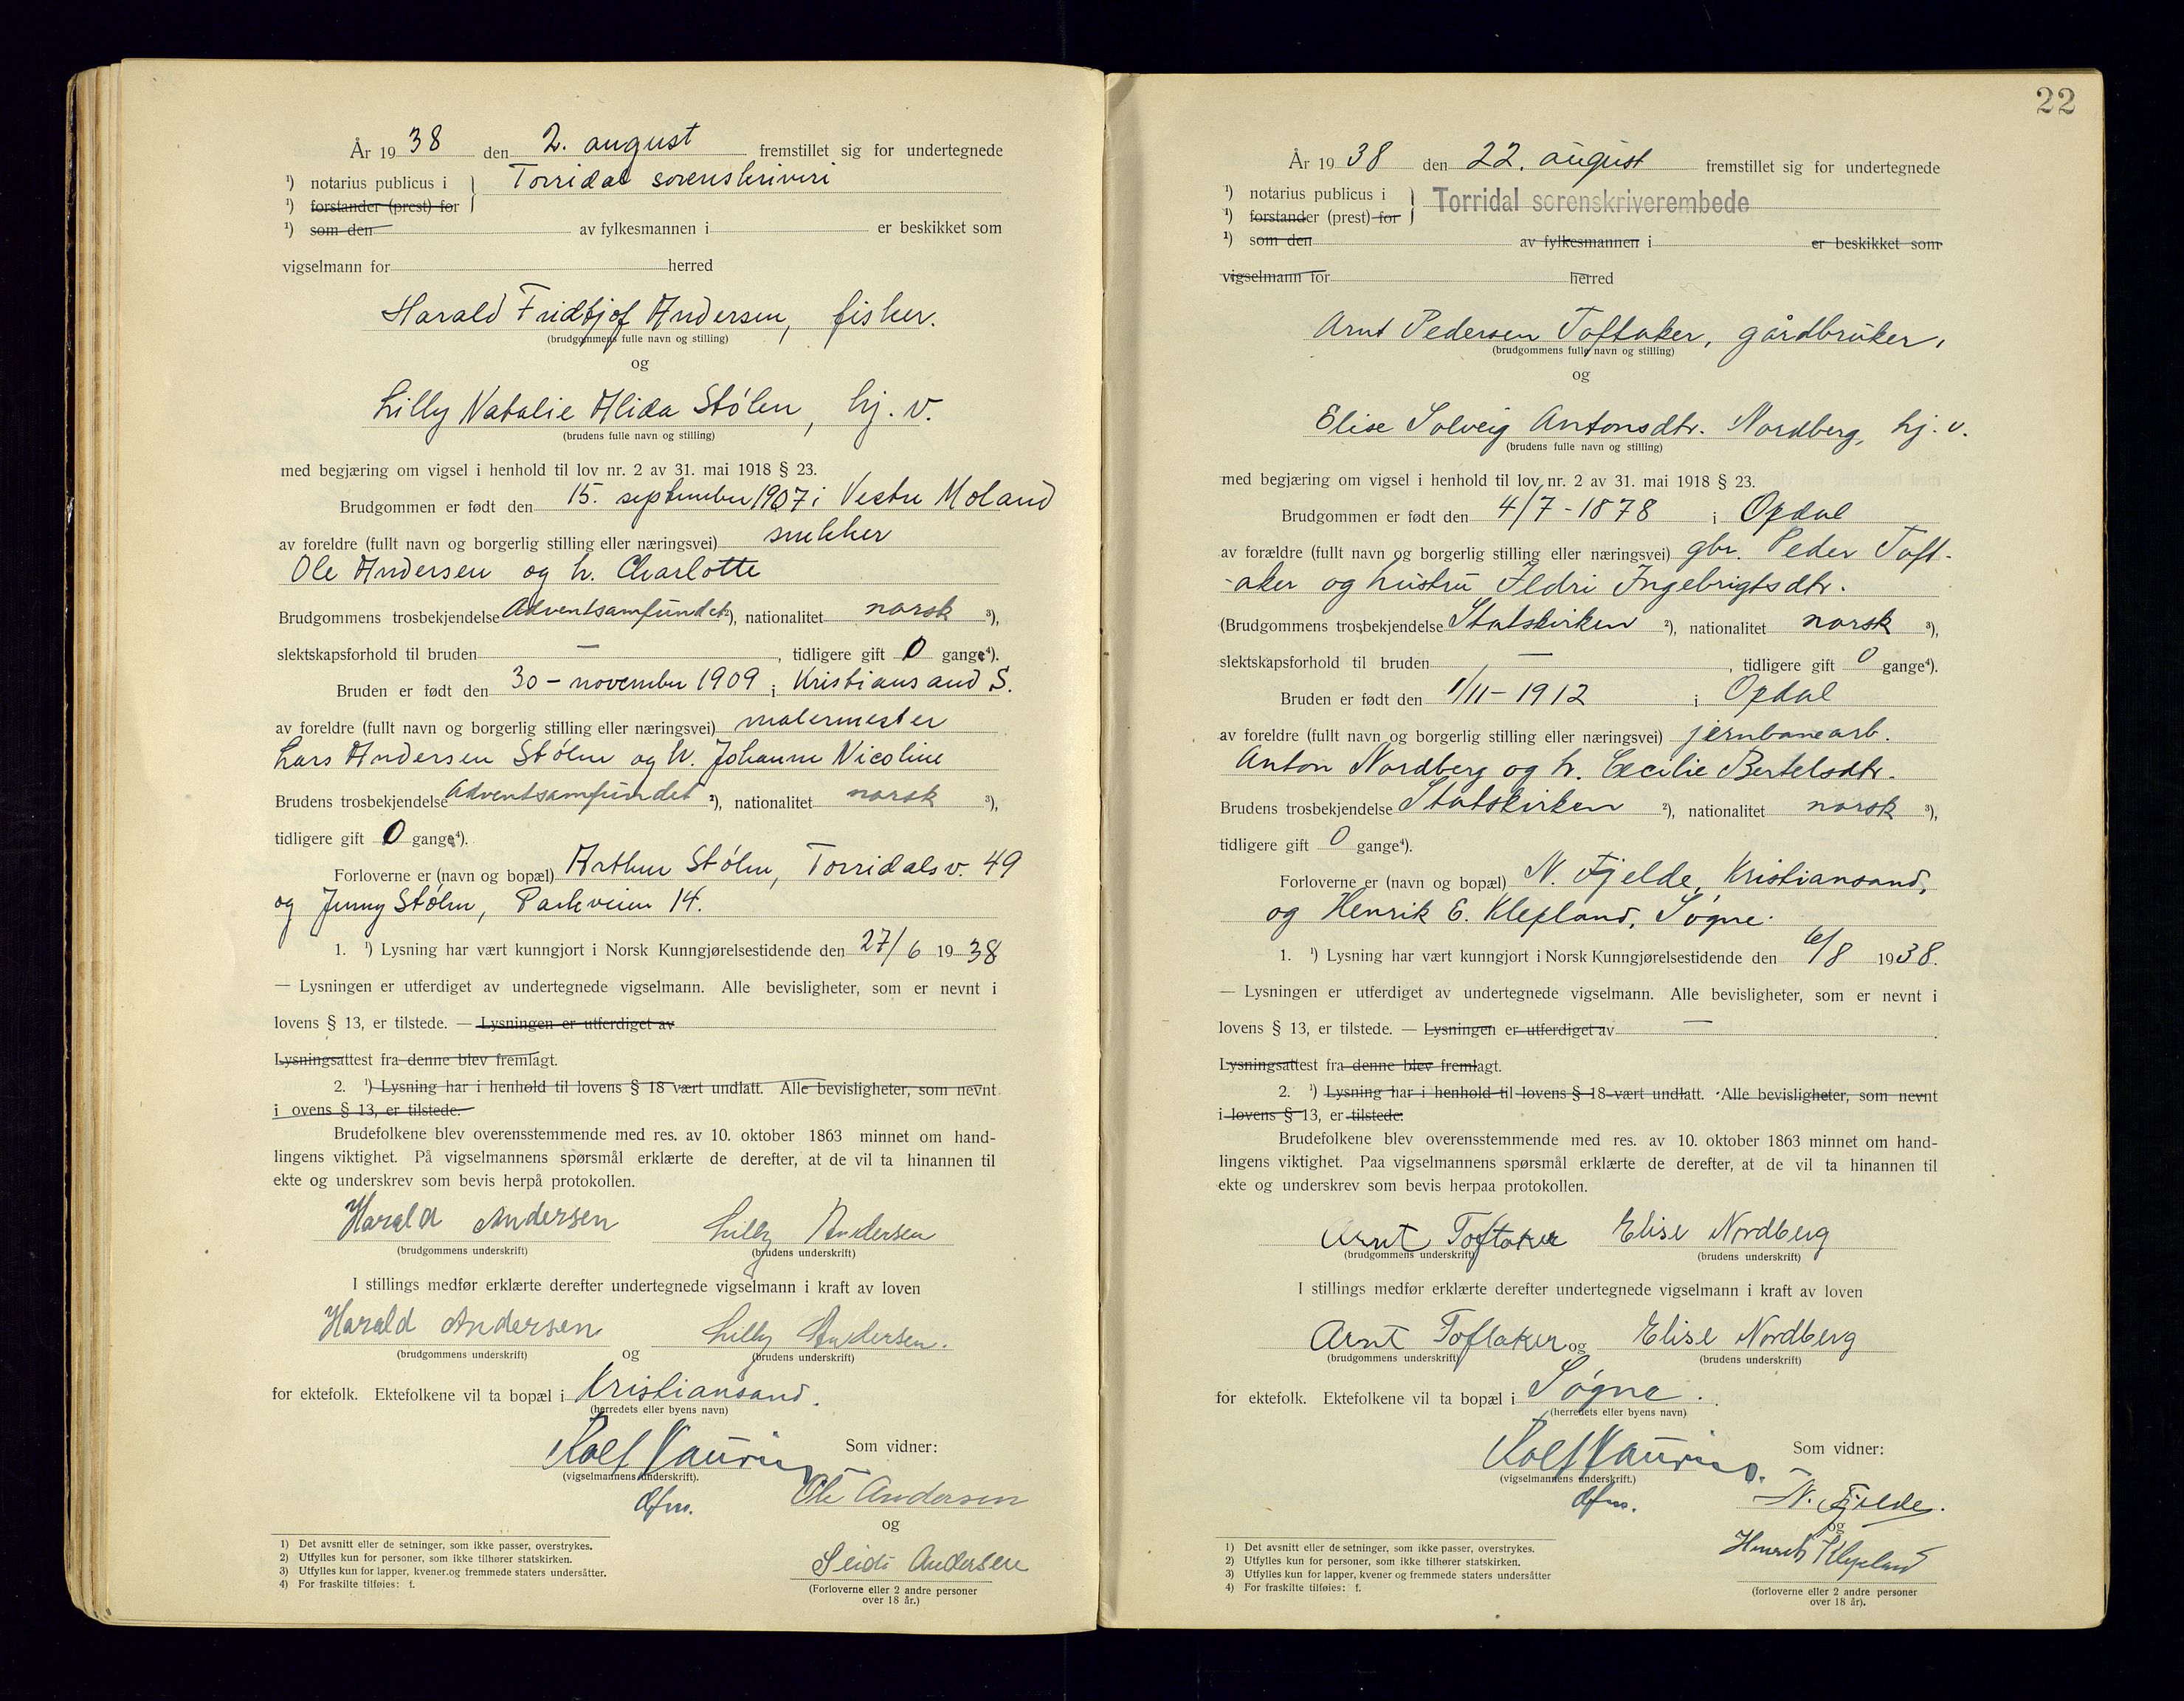 År 19 38 den 2. august fremstillet sig for undertegnede
¹) notarius publicus i } Torridal sorenskriveri
¹) forstander (prest) for
¹) som den av fylkesmannen i er beskikket som
vigselmann for herred
Harald Fridtjof Andersen, fisker.
(brudgommens fulle navn og stilling)
og
Lilly Natalie Alida Stølen, hj. v.
(brudens fulle navn og stilling)
med begjæring om vigsel i henhold til lov nr. 2 av 31. mai 1918 § 23.
Brudgommen er født den 15. september 1907 i Vestre Moland
av foreldre (fullt navn og borgerlig stilling eller næringsvei) snekker
Ole Andersen og h. Charlotte
Brudgommens trosbekjendelse Adventsamfundet ²), nationalitet norsk ³),
slektskapsforhold til bruden — , tidligere gift 0 gange⁴).
Bruden er født den 30 - november 1909 i Kristiansand S.
av foreldre (fullt navn og borgerlig stilling eller næringsvei) malermester
Lars Andersen Stølen og h. Johanne Nicoline
Brudens trosbekjendelse Adventsamfundet ²), nationalitet norsk ³),
tidligere gift 0 gange⁴).
Forloverne er (navn og bopæl) Arthur Stølen, Torridalsv. 49
og Jenny Stølen, Parkveien 14.
1. ¹) Lysning har vært kunngjort i Norsk Kunngjørelsestidende den 27/6 19 38
— Lysningen er utferdiget av undertegnede vigselmann. Alle bevisligheter, som er nevnt i
lovens § 13, er tilstede. — Lysningen er utferdiget av
Lysningsattest fra denne blev fremlagt.
2. ¹) Lysning har i henhold til lovens § 18 vært undlatt. Alle bevisligheter, som nevnt
i ovens § 13, er tilstede.
Brudefolkene blev overensstemmende med res. av 10. oktober 1863 minnet om hand-
lingens viktighet. På vigselmannens spørsmål erklærte de derefter, at de vil ta hinannen til
ekte og underskrev som bevis herpå protokollen.
Harald Andersen Lilly Andersen
(brudgommens underskrift) (brudens underskrift)
I stillings medfør erklærte derefter undertegnede vigselmann i kraft av loven
Harald Andersen og Lilly Andersen.
(brudgommens underskrift) (brudens underskrift)
for ektefolk. Ektefolkene vil ta bopæl i Kristiansand.
(herredets eller byens navn)
Rolf Som vidner:
(vigselmannens underskrift).
Ole Andersen
og
Andersen
(Forloverne eller 2 andre personer
over 18 år.)
1) Det avsnitt eller de setninger, som ikke passer, overstrykes.
2) Utfylles kun for personer, som ikke tilhører statskirken.
3) Utfylles kun for lapper, kvener.og fremmede staters undersåtter.
4) For fraskilte tilføies: f.
22
År 19 38 den 22. august fremstillet sig for undertegnede
¹) notarius publicus i } Torridal sorenskriverembede
¹) forstander (prest) for
¹) som den av fylkesmannen i er beskikket som
vigselmann for herred
Arnt Pedersen Toftaker, gårdbruker,
(brudgommens fulle navn og stilling)
og
Elise Solveig Antonsdtr. Nordberg, hj. v.
(brudens fulle navn og stilling)
med begjæring om vigsel i henhold til lov nr. 2 av 31. mai 1918 § 23.
Brudgommen er født den 4/7 - 1878 i Opdal
av forældre (fullt navn og borgerlig stilling eller næringsvei) gbr. Peder Toft-
-aker og hustru Ildri Ingebrigtsdtr.
(Brudgommens trosbekjendelse Statskirken ²), nationalitet norsk ³),
slektskapsforhold til bruden — , tidligere gift 0 gange⁴).
Bruden er født den 1/11 - 1912 i Opdal
av foreldre (fullt navn og borgerlig stilling eller næringsvei) jernbanearb.
Anton Nordberg og h. Cecilie Bertelsdtr.
Brudens trosbekjendelse Statskirken ²), nationalitet norsk ³),
tidligere gift 0 gange⁴).
Forloverne er (navn og bopæl) N. Fjelde, Kristiansand,
og Henrik E. Klepland, Søgne.
1. ¹) Lysning har vært kunngjort i Norsk Kunngjørelsestidende den 6/8 19 38.
— Lysningen er utferdiget av undertegnede vigselmann. Alle bevisligheter, som er nevnt i
lovens § 13, er tilstede. — Lysningen er utferdiget av —
Lysningsattest fra denne blev fremlagt.
2. ¹) Lysning har i henhold til lovens § 18 vært undlatt. Alle bevisligheter, som nevnt
i lovens § 13, er tilstede.
Brudefolkene blev overensstemmende med res. av 10. oktober 1863 minnet om hand-
lingens viktighet. Paa vigselmannens spørsmål erklærte de derefter, at de vil ta hinannen til
ekte og underskrev som bevis herpaa protokollen.
Arnt Toftaker Elise Nordberg
(brudgommens underskrift) (brudens underskrift)
I stillings medfør erklærte derefter undertegnede vigselmann i kraft av loven
Arnt Toftaker og Elise Nordberg
(brudgommens underskrift) (brudens underskrift)
for ektefolk. Ektefolkene vil ta bopæl i Søgne.
(herredets eller byens navn)
Rolf Som vidner:
(vigselmannens underskrift.)
N. Fjelde.
og
Henrik Klepland
(forloverne eller 2 andre personer
over 18 år).
1) Det avsnitt eller de setninger, som ikke passer, overstrykes.
2) Utfylles kun for personer, som ikke tilhører statskirken.
3) Utfylles kun for lapper, kvener og fremmede staters undersåtter
4) For fraskilte tilføies: f.